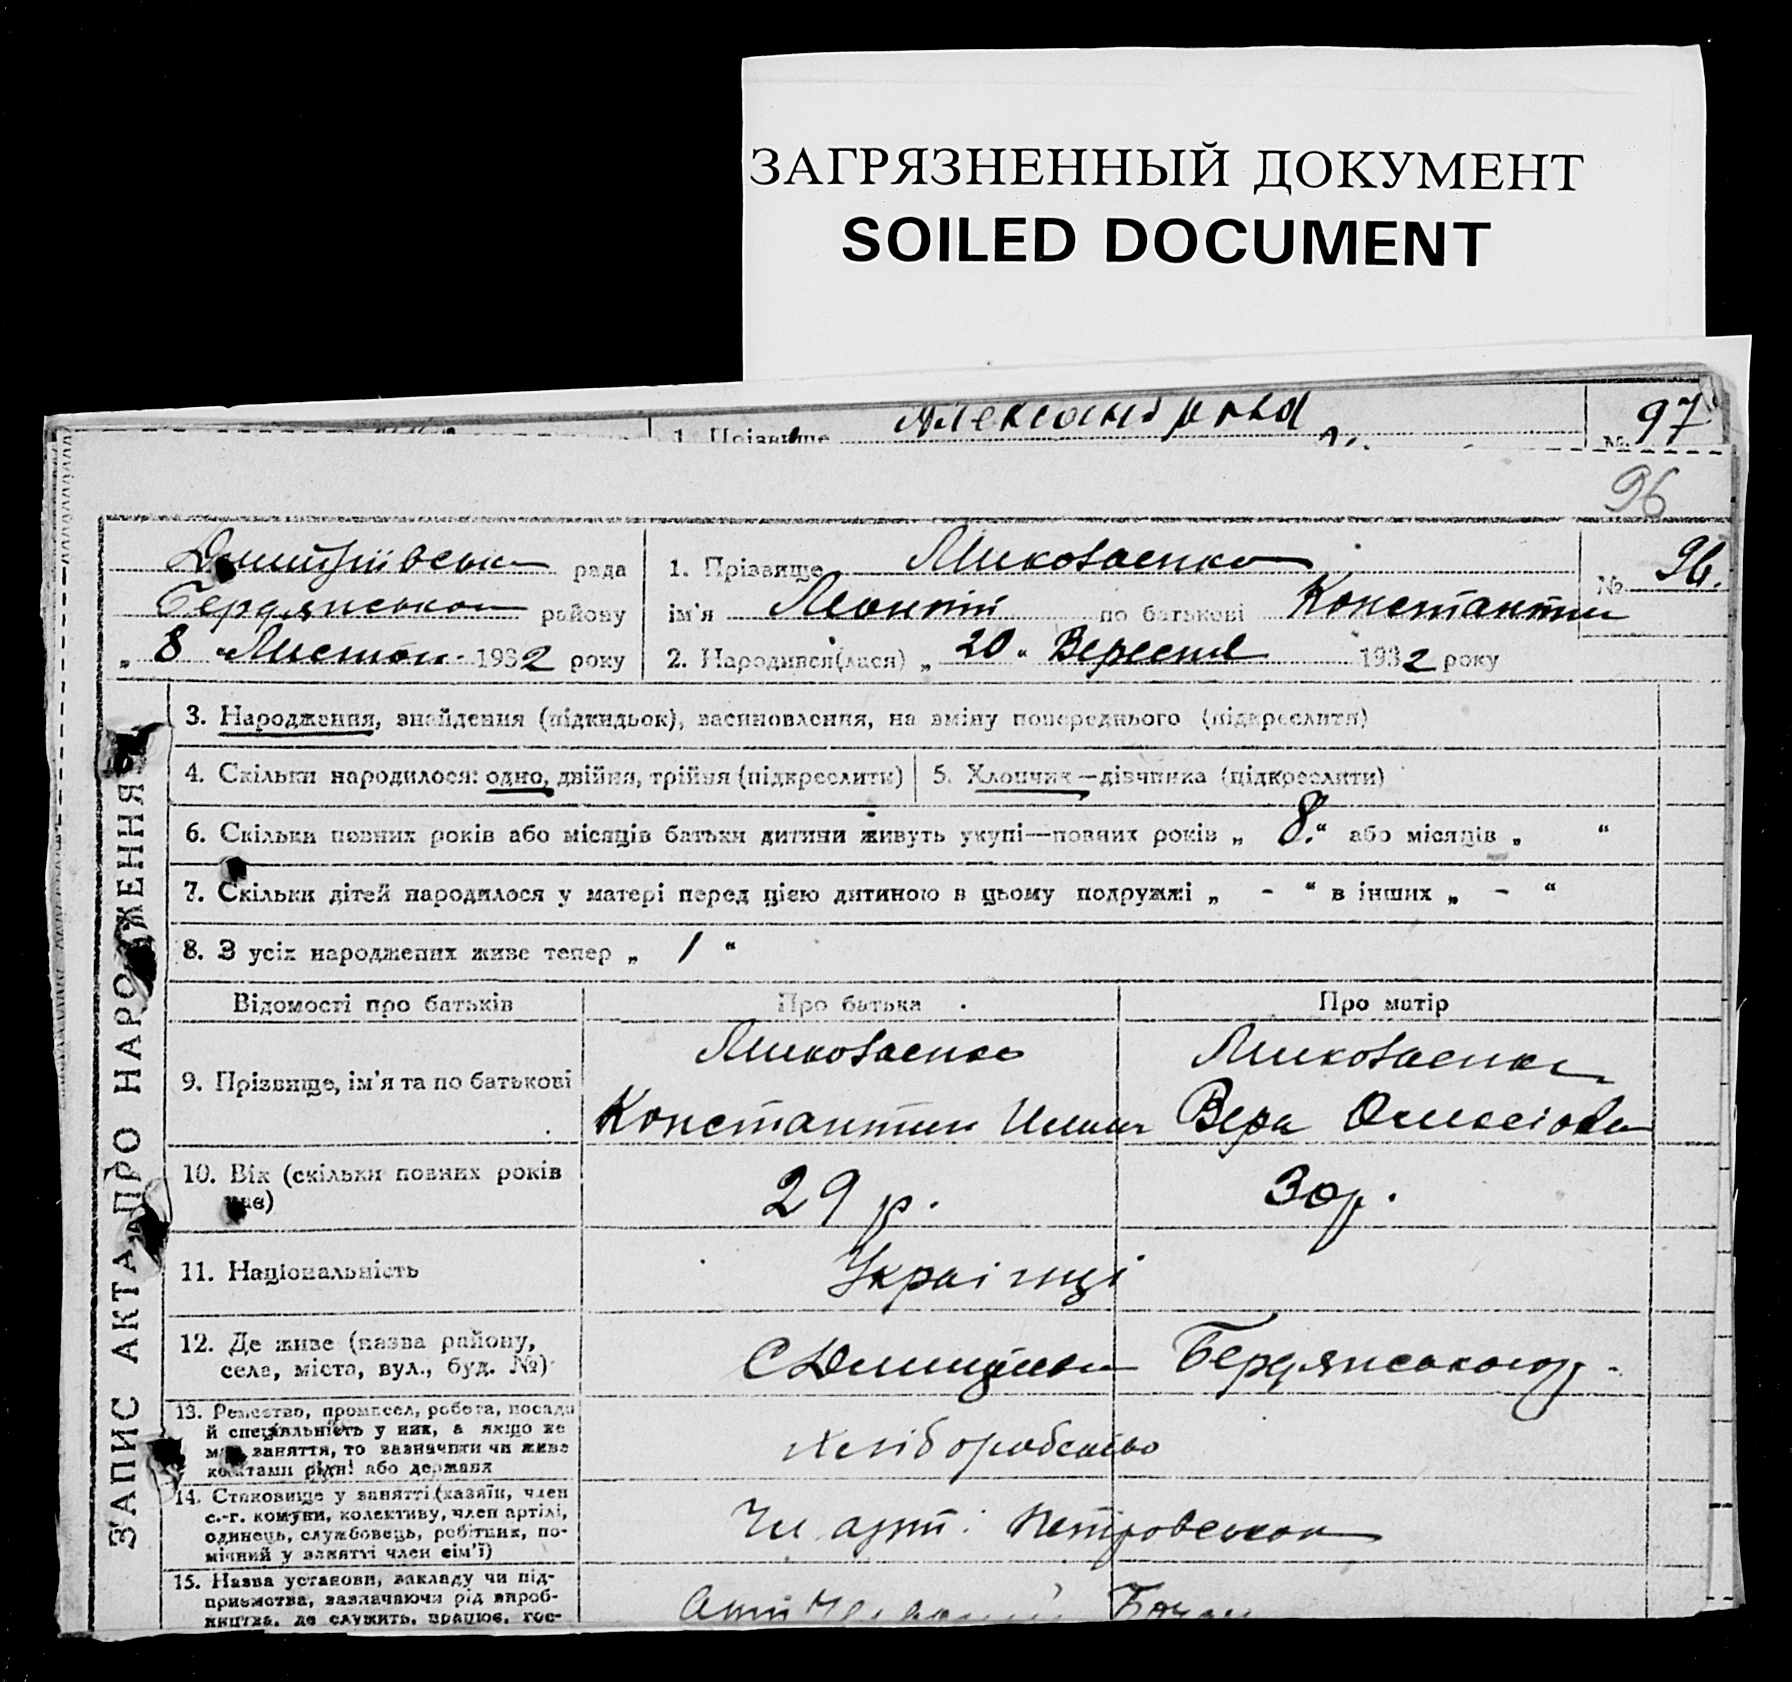 ЗАГРЯЗНЕННЫЙ ДОКУМЕНТ
SOILED DOCUMENT
1. Прізвище № 97
96
рада 1. Прізвище Миколаенко № 96.
Бердянського району ім'я Леонтій по батькові Константин
„ 8 " Листоп. 1932 року 2. Народився(лася) „ 20 " Вересня 1932 року
ЗАПИС АКТА ПРО НАРОДЖЕННЯ
3. Народження, знайдення (підкидьок), засиновлення, на зміну попереднього (підкреслити)
4. Скільки народилося: одно, двійня, трійня (підкреслити) 5. Хлопчик—дівчинка (підкреслити)
6. Скільки повних років або місяців батьки дитини живуть укупі—повних років „ 8. " або місяців „ "
7. Скільки дітей народилося у матері перед цією дитиною в цьому подружжі „ - " в інших „ - "
8. З усіх народжених живе тепер „ 1 "
Відомості про батьків Про батька Про матір
Миколаенко Миколаенко
9. Прізвище, ім'я та по батькові
Константин Вера
10. Вік (скільки повних років
має) 29 р. 30 р.
11. Національність Украінці
12. Де живе (назва району,
села, міста, вул., буд. №) С Бердянського р.
13. Ремество, промисел, робота, посада
й спеціяльність у них, а якщо не
має заняття, то зазначити чи живе хліборобство
коштами рідні або держави
14. Становище у занятті (хазяїн, член
с.-г. комуни, колективу, член артілі, Чл арт. Петровського
одинець, службовець, робітник, по-
мічний у занятті член сім'ї)
15. Назва установи, закладу чи під-
приємства, зазначаючи рід вироб-
ництва, де служить, працює, гос-